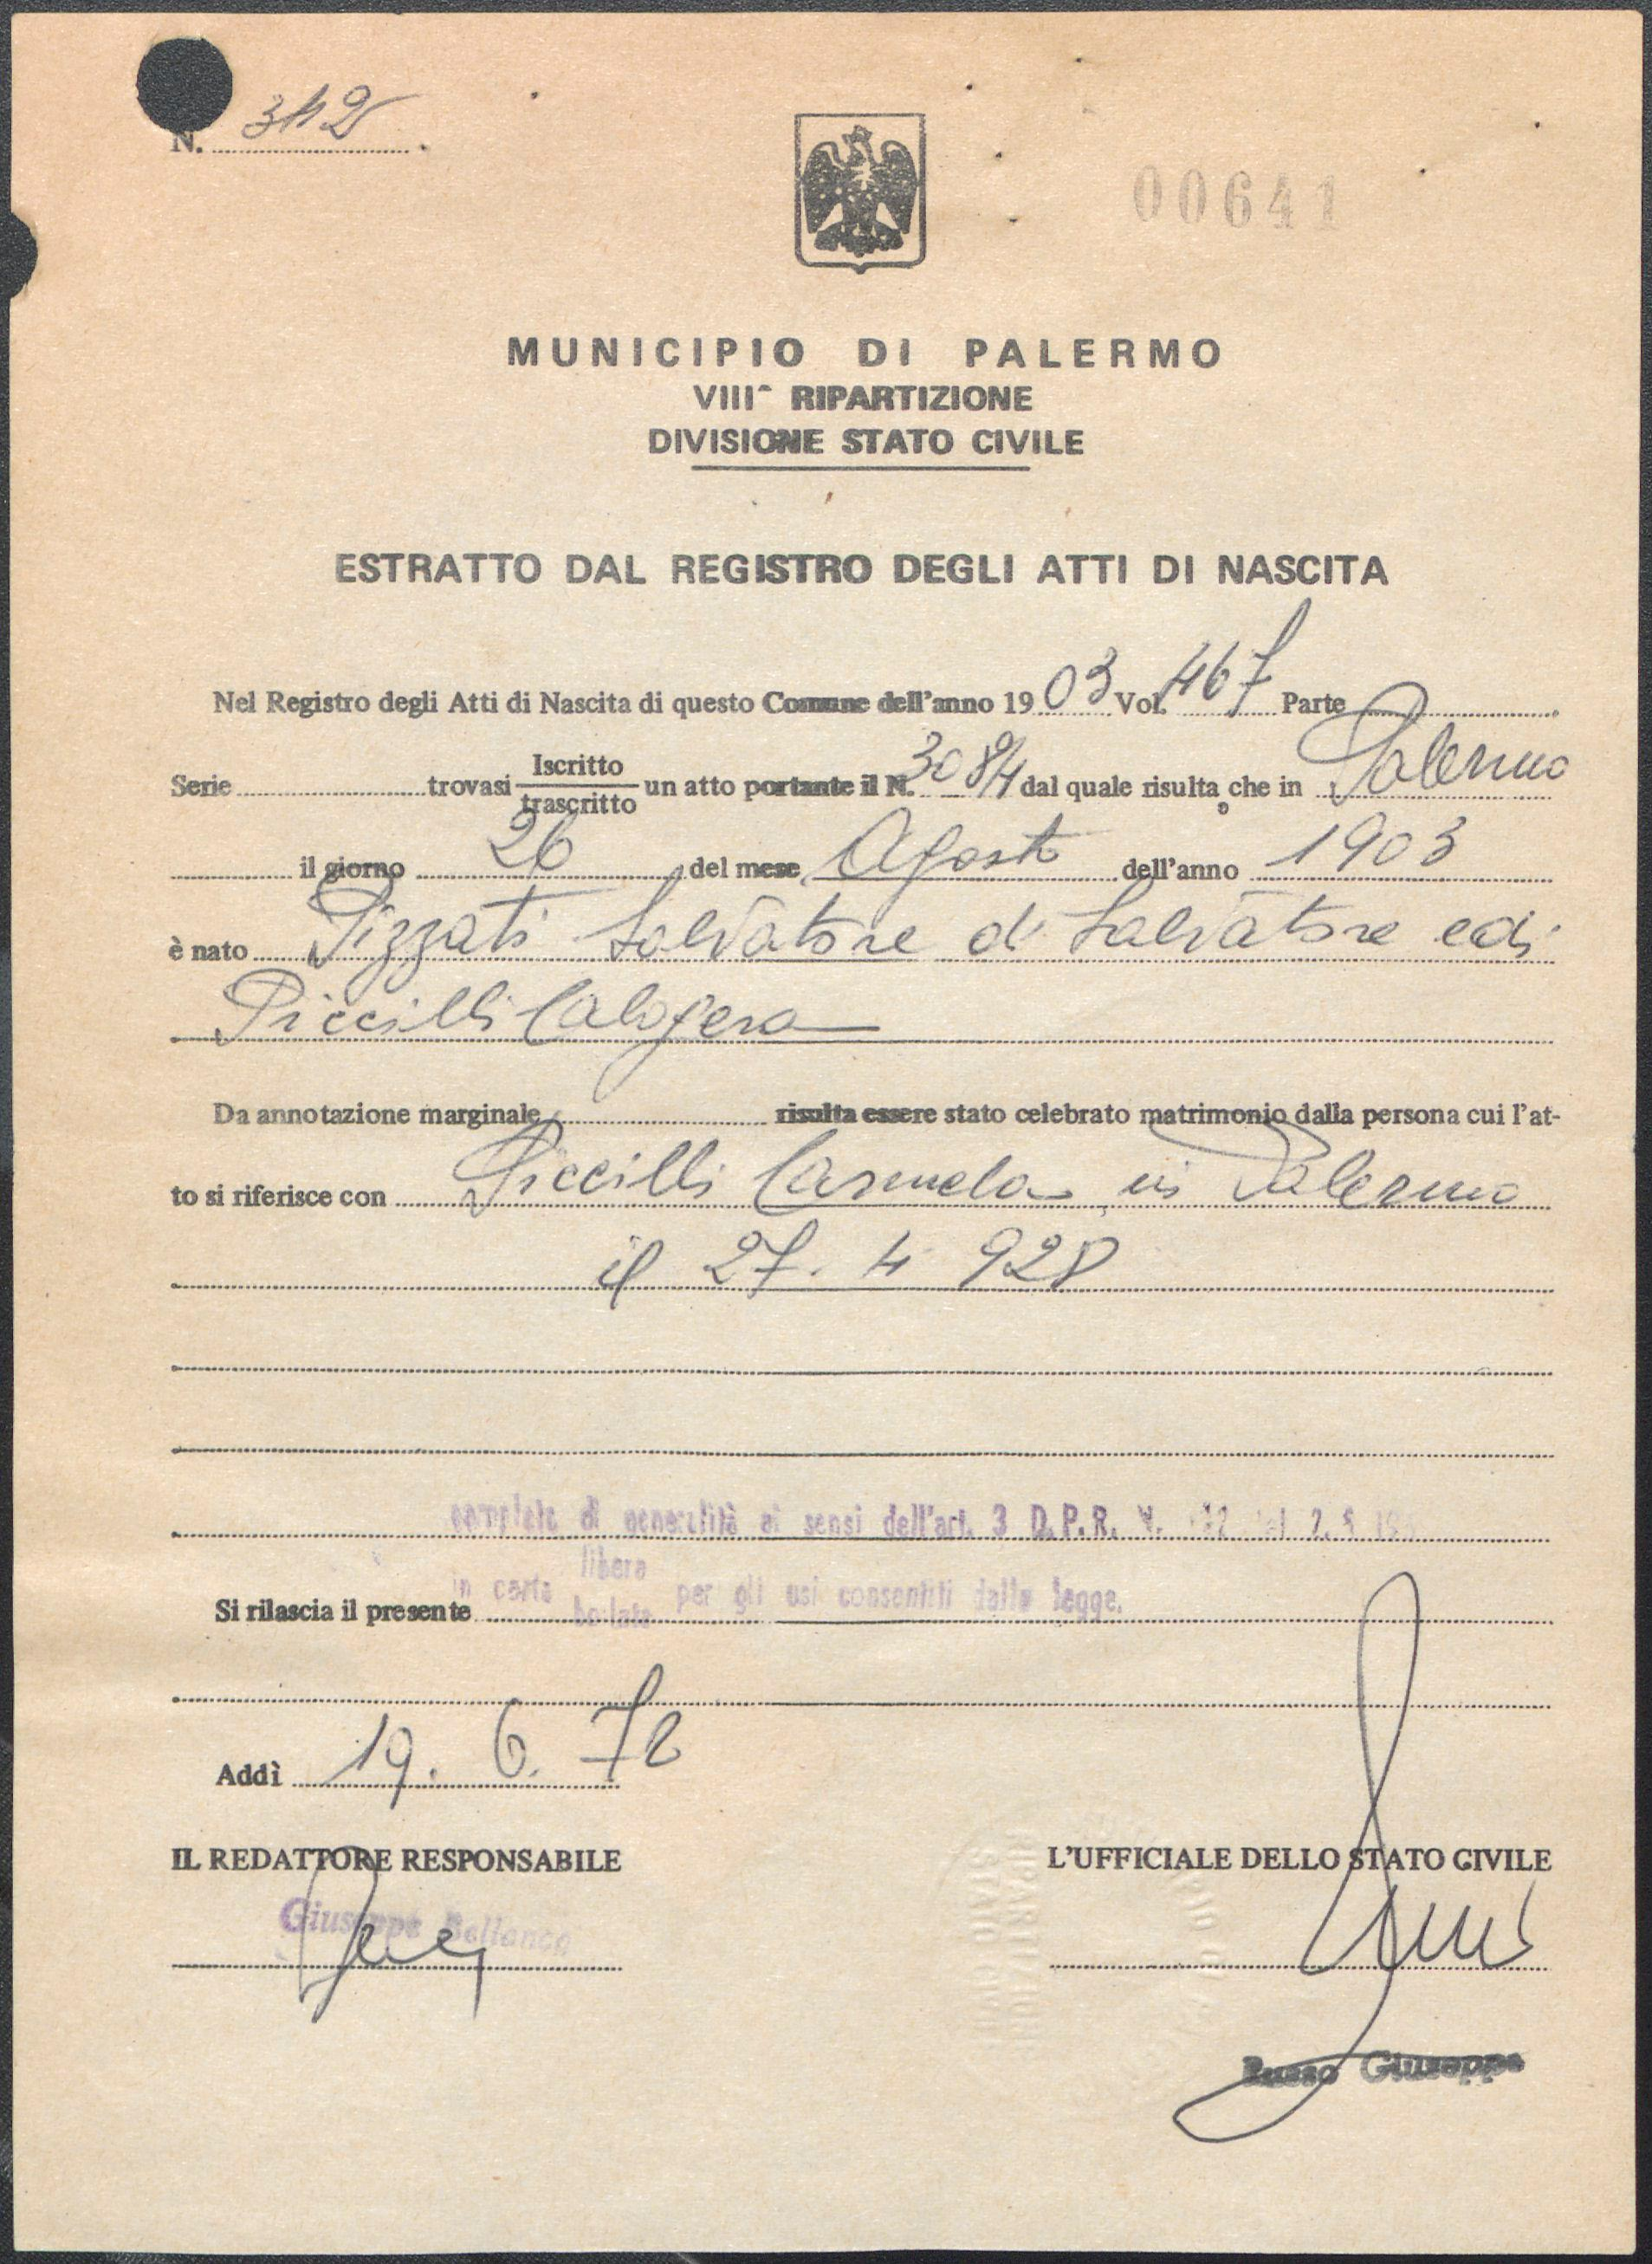 N. 342
00641
MUNICIPIO DI PALERMO
VIII^ RIPARTIZIONE
DIVISIONE STATO CIVILE
ESTRATTO DAL REGISTRO DEGLI ATTI DI NASCITA
Nel Registro degli Atti di Nascita di questo Comune dell'anno 1903 Vol. 467 Parte
Serie trovasi Iscritto trascritto un atto portante il N. 3084 dal quale risulta che in Palermo
il giorno 26 del mese Agosto dell'anno 1903
è nato Pizzati Salvatore di Salvatore e di
Piccilli Calogera
Da annotazione marginale risulta essere stato celebrato matrimonio dalla persona cui l'at-
to si riferisce con Piccilli Carmela in Palermo
il 27. 4 928
completo di generalità ai sensi dell'art. 3 D.P.R. N.
Si rilascia il presente in carta libera bollata per gli usi consentiti dalla legge.
Addì 19. 6. 72
IL REDATTORE RESPONSABILE L'UFFICIALE DELLO STATO CIVILE
Giuseppe Bellanca
Russo Giuseppe